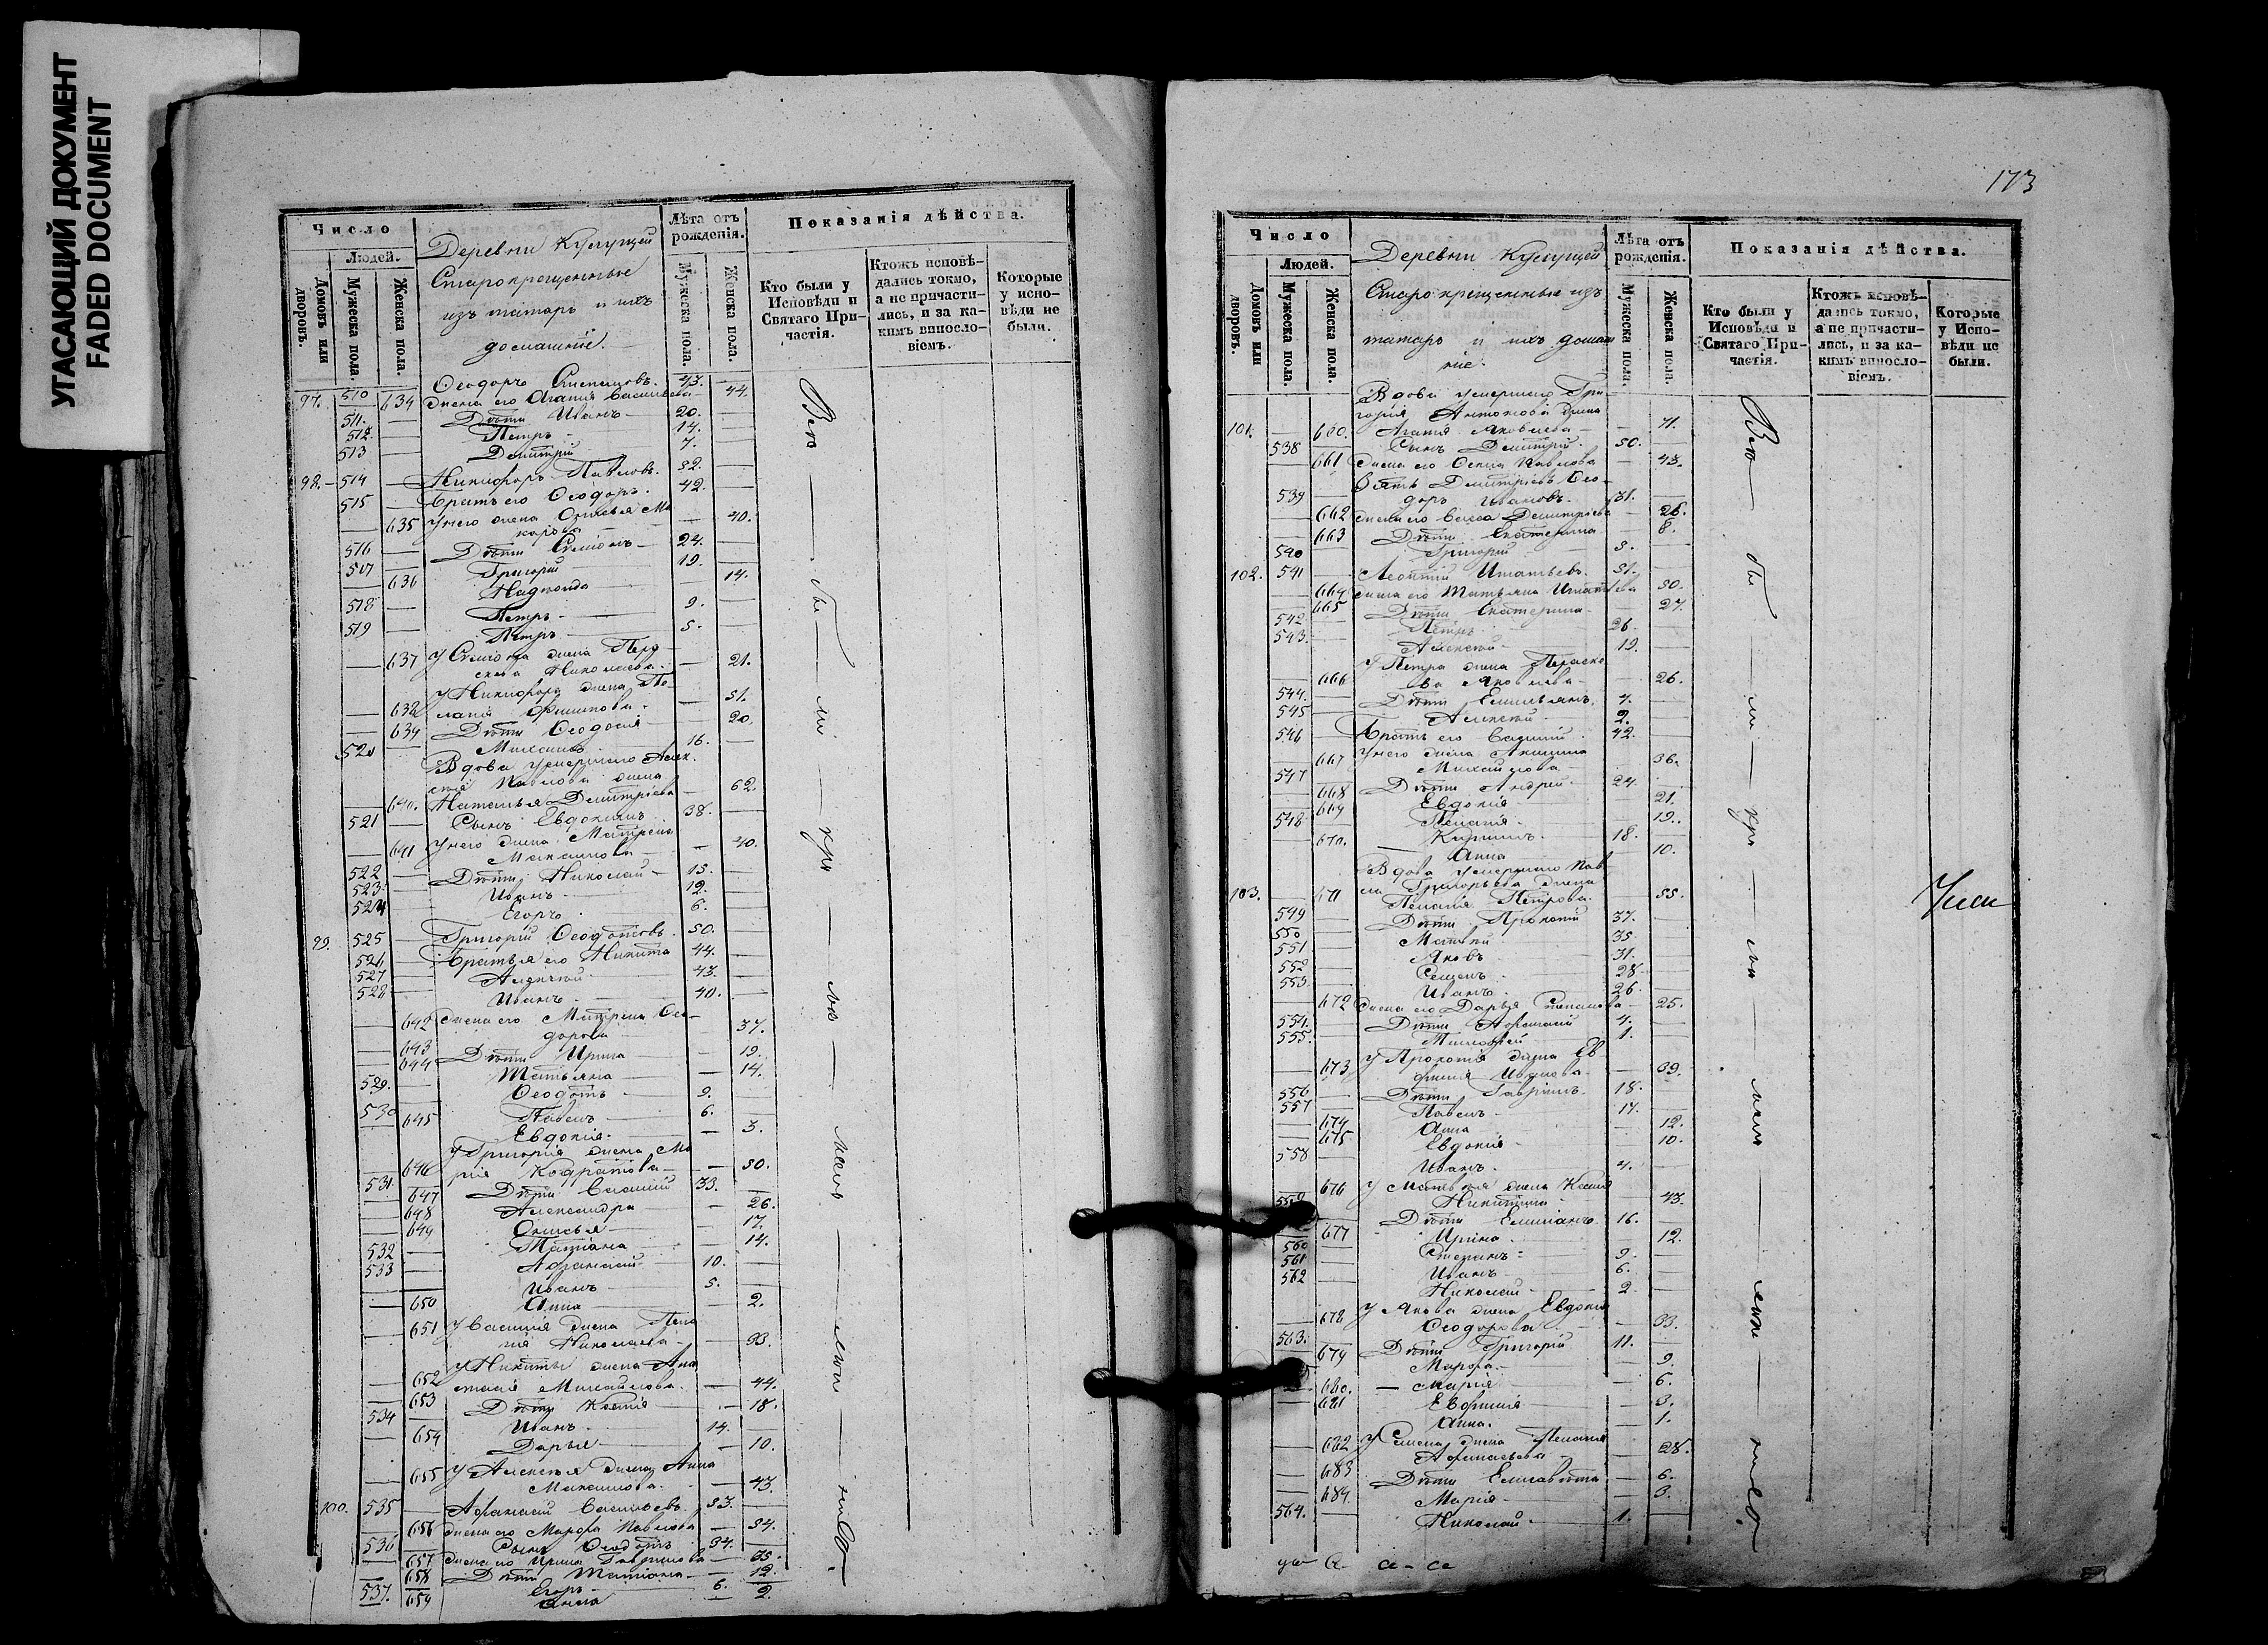 УГАСАЮЩИЙ ДОКУМЕНТ
FADED DOCUMENT
Число
Людей.
Домовъ или дворовъ.
Мужеска пола.
Женска пола.
Деревни
Старокрещенные
изъ татаръ и ихъ
домашніе.
Лѣта отъ рожденія.
Мужеска пола.
Женска пола.
Показанія дѣйства.
Кто были у Исповѣди и Святаго Причастія.
Ктожъ исповѣдались токмо, а не причастились, и за какимъ винословіемъ.
Которые у исповѣди не были.
97. 510 Ѳеодоръ 43.
634 жена его Агапія Васильева 44.
511. Дѣти Иванъ 20.
512. Петръ 14.
513 Димитрій 7.
98. 514 Никифоръ Павловъ. 52.
515 Братъ его Ѳеодоръ. 42.
635 У него жена Онисья Макарова 40.
516 Дѣти Симіонъ 24.
517 Григорій 19.
636 Надежда 14.
518 Петръ 9.
519 Петръ 5.
637 У Симіона жена Параскева Николаева 21.
638 У Никифора жена Пелагія Филипова 51.
639 Дѣти Ѳеодосія 20.
520 Михаилъ 16.
Вдова умершаго Алексія Павлова жена
640. Наталья Димитріева 62.
521 Сынъ Евдокимъ 38.
641 У него жена Матрена Максимова 40.
522 Дѣти Николай 15.
523 Иванъ 12.
524 Егоръ 6.
99. 525 Григорій Ѳеодотовъ. 50.
526 Братья его Никита 44.
527 Алексѣй 43.
528 Иванъ 40.
642 жена его Матрена Ѳеодорова 37.
643 Дѣти Ирина 19.
644 Татьяна 14.
529. Ѳеодотъ 9.
530 Павелъ 6.
645 Евдокія 3.
646 У Григорія жена Марія Кодратова 50.
531. Дѣти Василій 33.
647 Александра 26.
648 Онисья 17.
649 Татіана 14.
532 Афанасій 10.
533 Иванъ 5.
650 Анна 2.
651 У Василія жена Пелагія Николаева 33.
652 У Никиты жена Анастасія Михайлова. 44.
653 Дѣти Ксенія 18.
534 Иванъ 14.
654 Дарья 10.
655 У Алексѣя жена Анна Максимова. 43.
100. 535 Афанасій Васильевъ. 53.
656 жена его Марфа Павлова 54.
536 Сынъ Ѳеодотъ 34.
657 жена его Ирина Гаврилова 35.
658 Дѣти Татіана 12.
537. Егоръ 6.
659 Анна 2.
Всѣ бы ли
173
Число
Людей.
Домовъ или дворовъ.
Мужеска пола.
Женска пола.
Деревни
Старокрещенные изъ
татаръ и ихъ домашніе.
Лѣта отъ рожденія.
Мужеска пола.
Женска пола.
Показанія дѣйства.
Кто были у Исповѣди и Святаго Причастія.
Ктожъ исповѣдались токмо, а не причастились, и за какимъ винословіемъ.
Которые у Исповѣди не были.
Вдова умершаго Григорія Антонова жена
101. 660. Агапія Яковлева 71.
538 Сынъ Димитрій 50.
661 жена его Павлова 43.
539 Зять Димитріевъ Ѳеодоръ Ивановъ. 31.
662 жена его Васса Димитріева 26.
663 Дѣти Екатерина 8.
540 Григорій 3.
102. 541 Леонтій Игнатьевъ. 51.
664 жена его Татьяна Игнатьева 50.
665 Дѣти Екатерина 27.
542 Петръ 26.
543. Алексѣй 19.
666 У Петра жена Параскева Яковлева 26.
544. Дѣти Емильянъ 4.
545 Алексѣй 2.
546 Братъ его Василій 42.
667 У него жена Акилина Михайлова 36.
547 Дѣти Андрей 24.
668 Евдокія 21.
669 Пелагія 19.
548 Кирилъ 18.
670. Анна 10.
Вдова умершаго Павла Григорьева жена
103. 671 Пелагія Петрова 55.
549 Дѣти Прокопій 37.
550 Матвѣй 35.
551 Яковъ 31.
552 Семенъ 28.
553 Иванъ 26.
672 жена его Дарья Степанова 25.
554. Дѣти Афанасій 4.
555. Тимофей 1.
673 У Прокопія жена Евфимія Иванова 39.
556 Дѣти Гавріилъ 18.
557 Павелъ 17.
674 Анна 12.
675 Евдокія 10.
558 Иванъ 4.
676 У Матвѣя жена Ксенія Никитина 43.
559 Дѣти Емиліанъ 16.
677 Ирина 12.
560 Степанъ 9.
561 Иванъ 6.
562 Николай 2.
678 У Якова жена Евдокія Ѳеодорова 33.
563. Дѣти Григорій 11.
679 Марфа 9.
680. Марія 6.
681 Евфимія 3.
Анна. 1.
682 У Семена жена Пелагія Афанасьева 28.
683 Дѣти Елисавета 6.
684 Марія 3.
564. Николай 1.
Всѣ бы ли